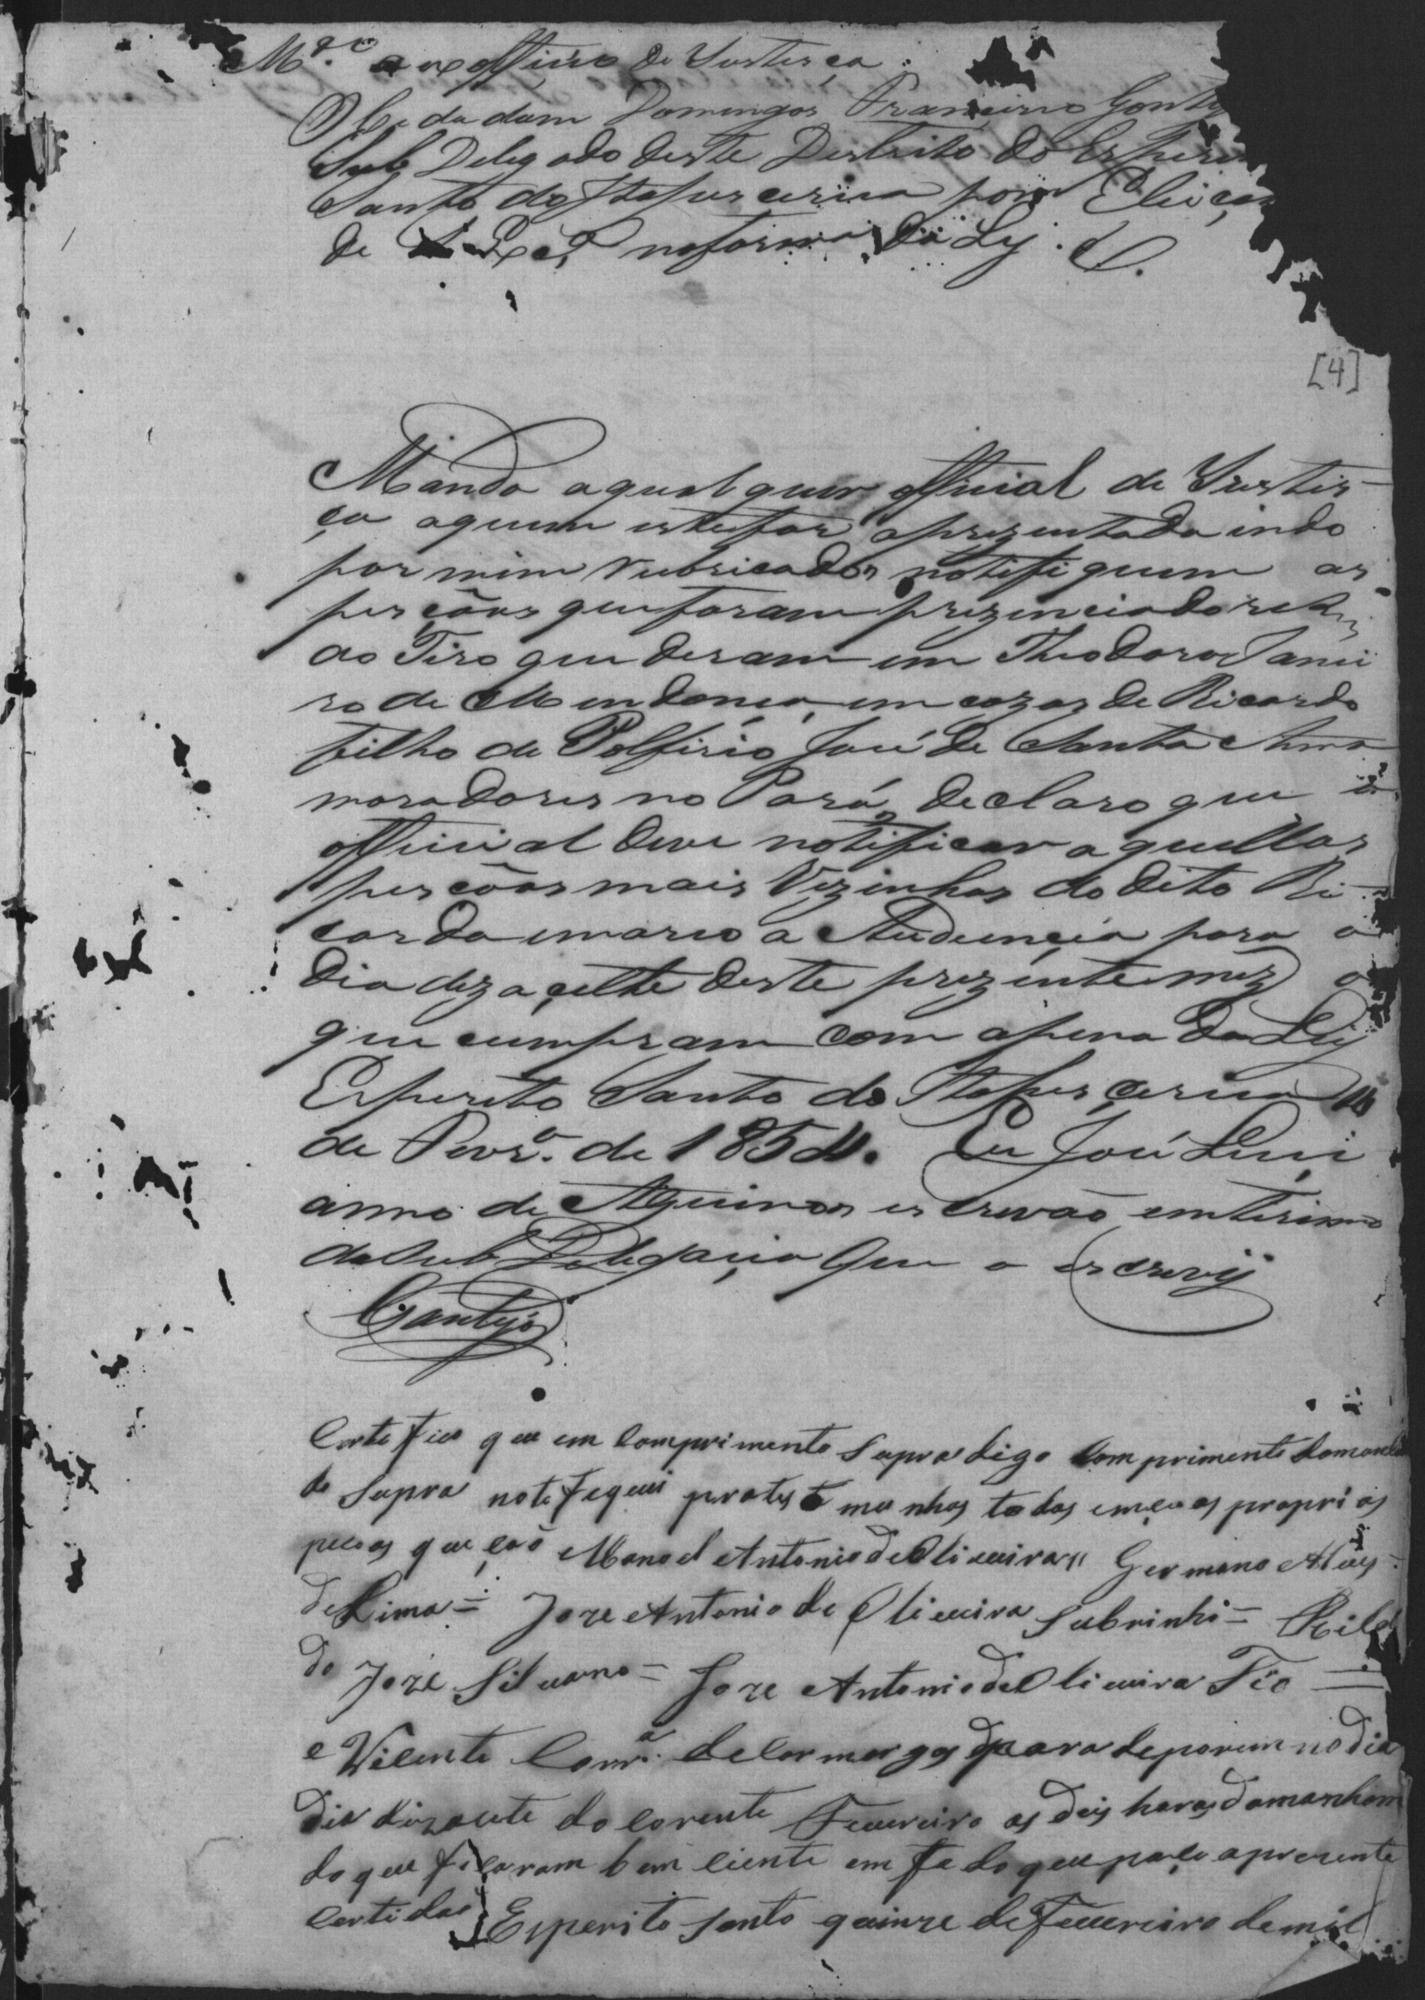 M.do a ex officio de Justiça.
O Cidadam Domingos Francisco Gonty
Sub Delegado deste Destrito do Esperi
Santo do Itapuscirica por Eleiçao
de na forma da Ley. &.
[4]
Mando a qualquer official de Justis-
ça a quem este for aprezentado indo
por mim rubricado, notifiquem as
perçõas que foram prezenciadores
ao Tiro que deram em Theodoro Janui
ro de Mendonça, em cazas de Ricardo
filho de Polfirio José de Santa Anna
moradores no Pará, declaro que o
official deve notificar aquellas
perçõas mais Vezinhas do dito Ri-
cardo emarco a Audiencia para o
dia dezacette deste prezente mez o
que cumpram com apena da Ley
Esperito Santo do Itapuscerica 14
de Fevr.o de 1854. Eu José Luci
anno de Aguiar escrevão enterino
da Sub Delegacia que o escrevy
Gontijo
Certefico que em Comprimento Supra digo Comprimento domanda
do Supra notefequei protestemunhas todas emcuas proprias
pecoas que ção Manoel Antonio de Oliueira,, Germano Alues-
de Lima= Joze Antonio de Oliueira Subrinho=
do Joze Siluano= Joze Antonio de Oliueira Fio =
e Vicente Corr.a de Cormargos para deporem no Dia
dia dizacete do corente Feuereiro as deis horas damanham
do que ficaram bem ciente em fe do que paço apresente
Certidao Esperito Santo quinze de Feuereiro de mil